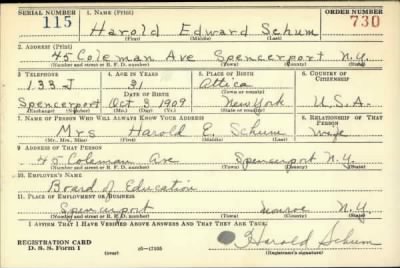 SERIAL NUMBER 1. NAME (Print) ORDER NUMBER
115 Harold Edward Schum 730
(First) (Middle) (Last)
2. ADDRESS (Print)
45 Coleman Ave Spencerport N.Y.
(Number and street or R. F. D. number) (Town) (County) (State)
3. TELEPHONE 4. AGE IN YEARS 5. PLACE OF BIRTH 6. COUNTRY OF CITIZENSHIP
133 J 31 Attica
DATE OF BIRTH (Town or county)
Spencerport Oct 3 1909 New York U.S.A.
(Exchange) (No.) (Mo.) (Day) (Yr.) (State or country)
7. NAME OF PERSON WHO WILL ALWAYS KNOW YOUR ADDRESS 8. RELATIONSHIP OF THAT PERSON
Mrs Harold E. Schum Wife
(Mr., Mrs., Miss) (First) (Middle) (Last)
9. ADDRESS OF THAT PERSON
45 Coleman Ave Spencerport N.Y.
(Number and street or R. F. D. number) (Town) (County) (State)
10. EMPLOYER'S NAME
Board of Education
11. PLACE OF EMPLOYMENT OR BUSINESS
Spencerport Monroe N.Y.
(Number and street or R. F. D. number) (Town) (County) (State)
I AFFIRM THAT I HAVE VERIFIED ABOVE ANSWERS AND THAT THEY ARE TRUE.
REGISTRATION CARD
D. S. S. Form 1 (over) 16—17105 Harold Schum
(Registrant's signature)